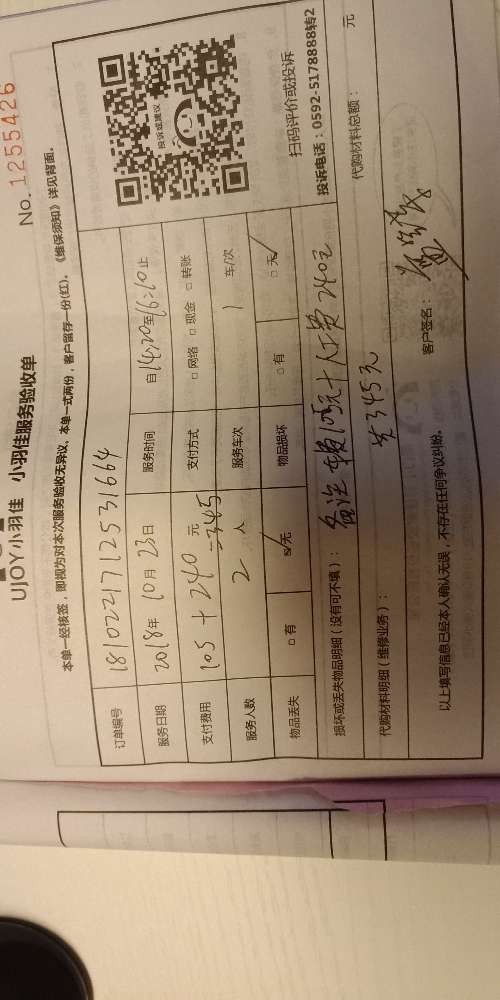 UJOY小羽佳 小羽佳服务验收单
No. 1255426
本单一经核签，即视为对本次服务验收无异议，本单一式两份，客户留存一份(红)。《维保须知》详见背面。
订单编号 181022171253 1664
服务日期 2018年 10月 23日 服务时间 自14:20至16:10止
支付费用 105 + 240 元 =345 支付方式 □网络 □现金 □转账
服务人数 2 人 服务车次 1 车/次
物品丢失 □有 □无 物品损坏 □有 □无
投诉或建议
扫码评价或投诉
投诉电话：0592-5178888转2
损坏或丢失物品明细（没有可不填）： 备注 车费105元+人工费240元
代购材料明细（维修业务）： 共345元 代购材料总额： 元
以上填写信息已经本人确认无误，不存在任何争议纠纷。 客户签名：